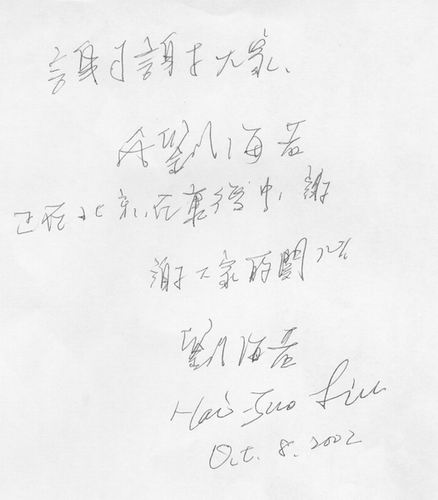 謝謝大家、
劉海若
正在北京,在裏後中,謝
謝大家的關心
劉海若
Hai-Juo Liu
Oct. 8. 2002